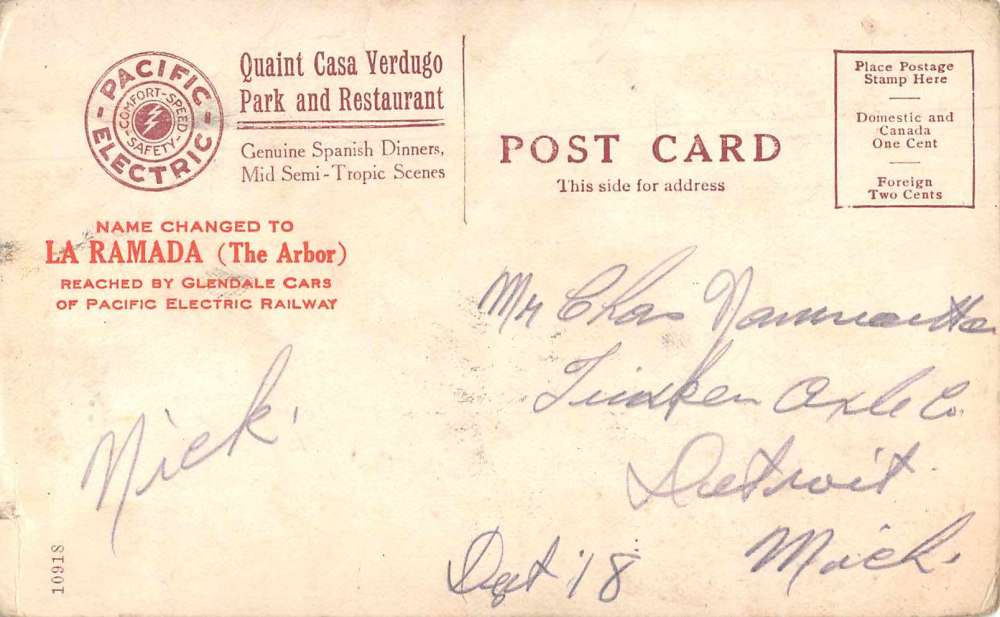 PACIFIC ELECTRIC
COMFORT-SPEED SAFETY
Quaint Casa Verdugo
Park and Restaurant
Genuine Spanish Dinners,
Mid Semi-Tropic Scenes
NAME CHANGED TO
LA RAMADA (The Arbor)
REACHED BY GLENDALE CARS
OF PACIFIC ELECTRIC RAILWAY
Nick.
10918
POST CARD
This side for address
Place Postage
Stamp Here
Domestic and
Canada
One Cent
Foreign
Two Cents
Mr Chas
Timken Axle Co.
Detroit
Mich.
Dept 18